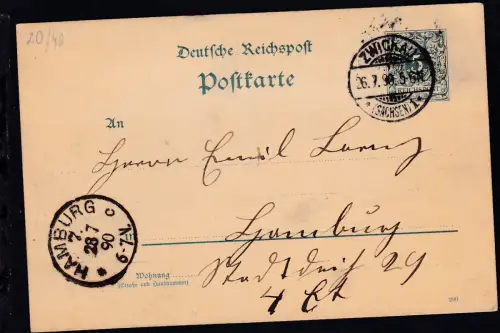 20/40
Deutsche Reichspost
Postkarte
ZWICKAU
26.7.90.5-6N.
* (SACHSEN) 1 *
5
REICHSPOST
An
Herrn Emil
Hamburg
Stadtdeich 29
4 Et
HAMBURG C
7
90
6-7N.
Wohnung
(Straße und Hausnummer)